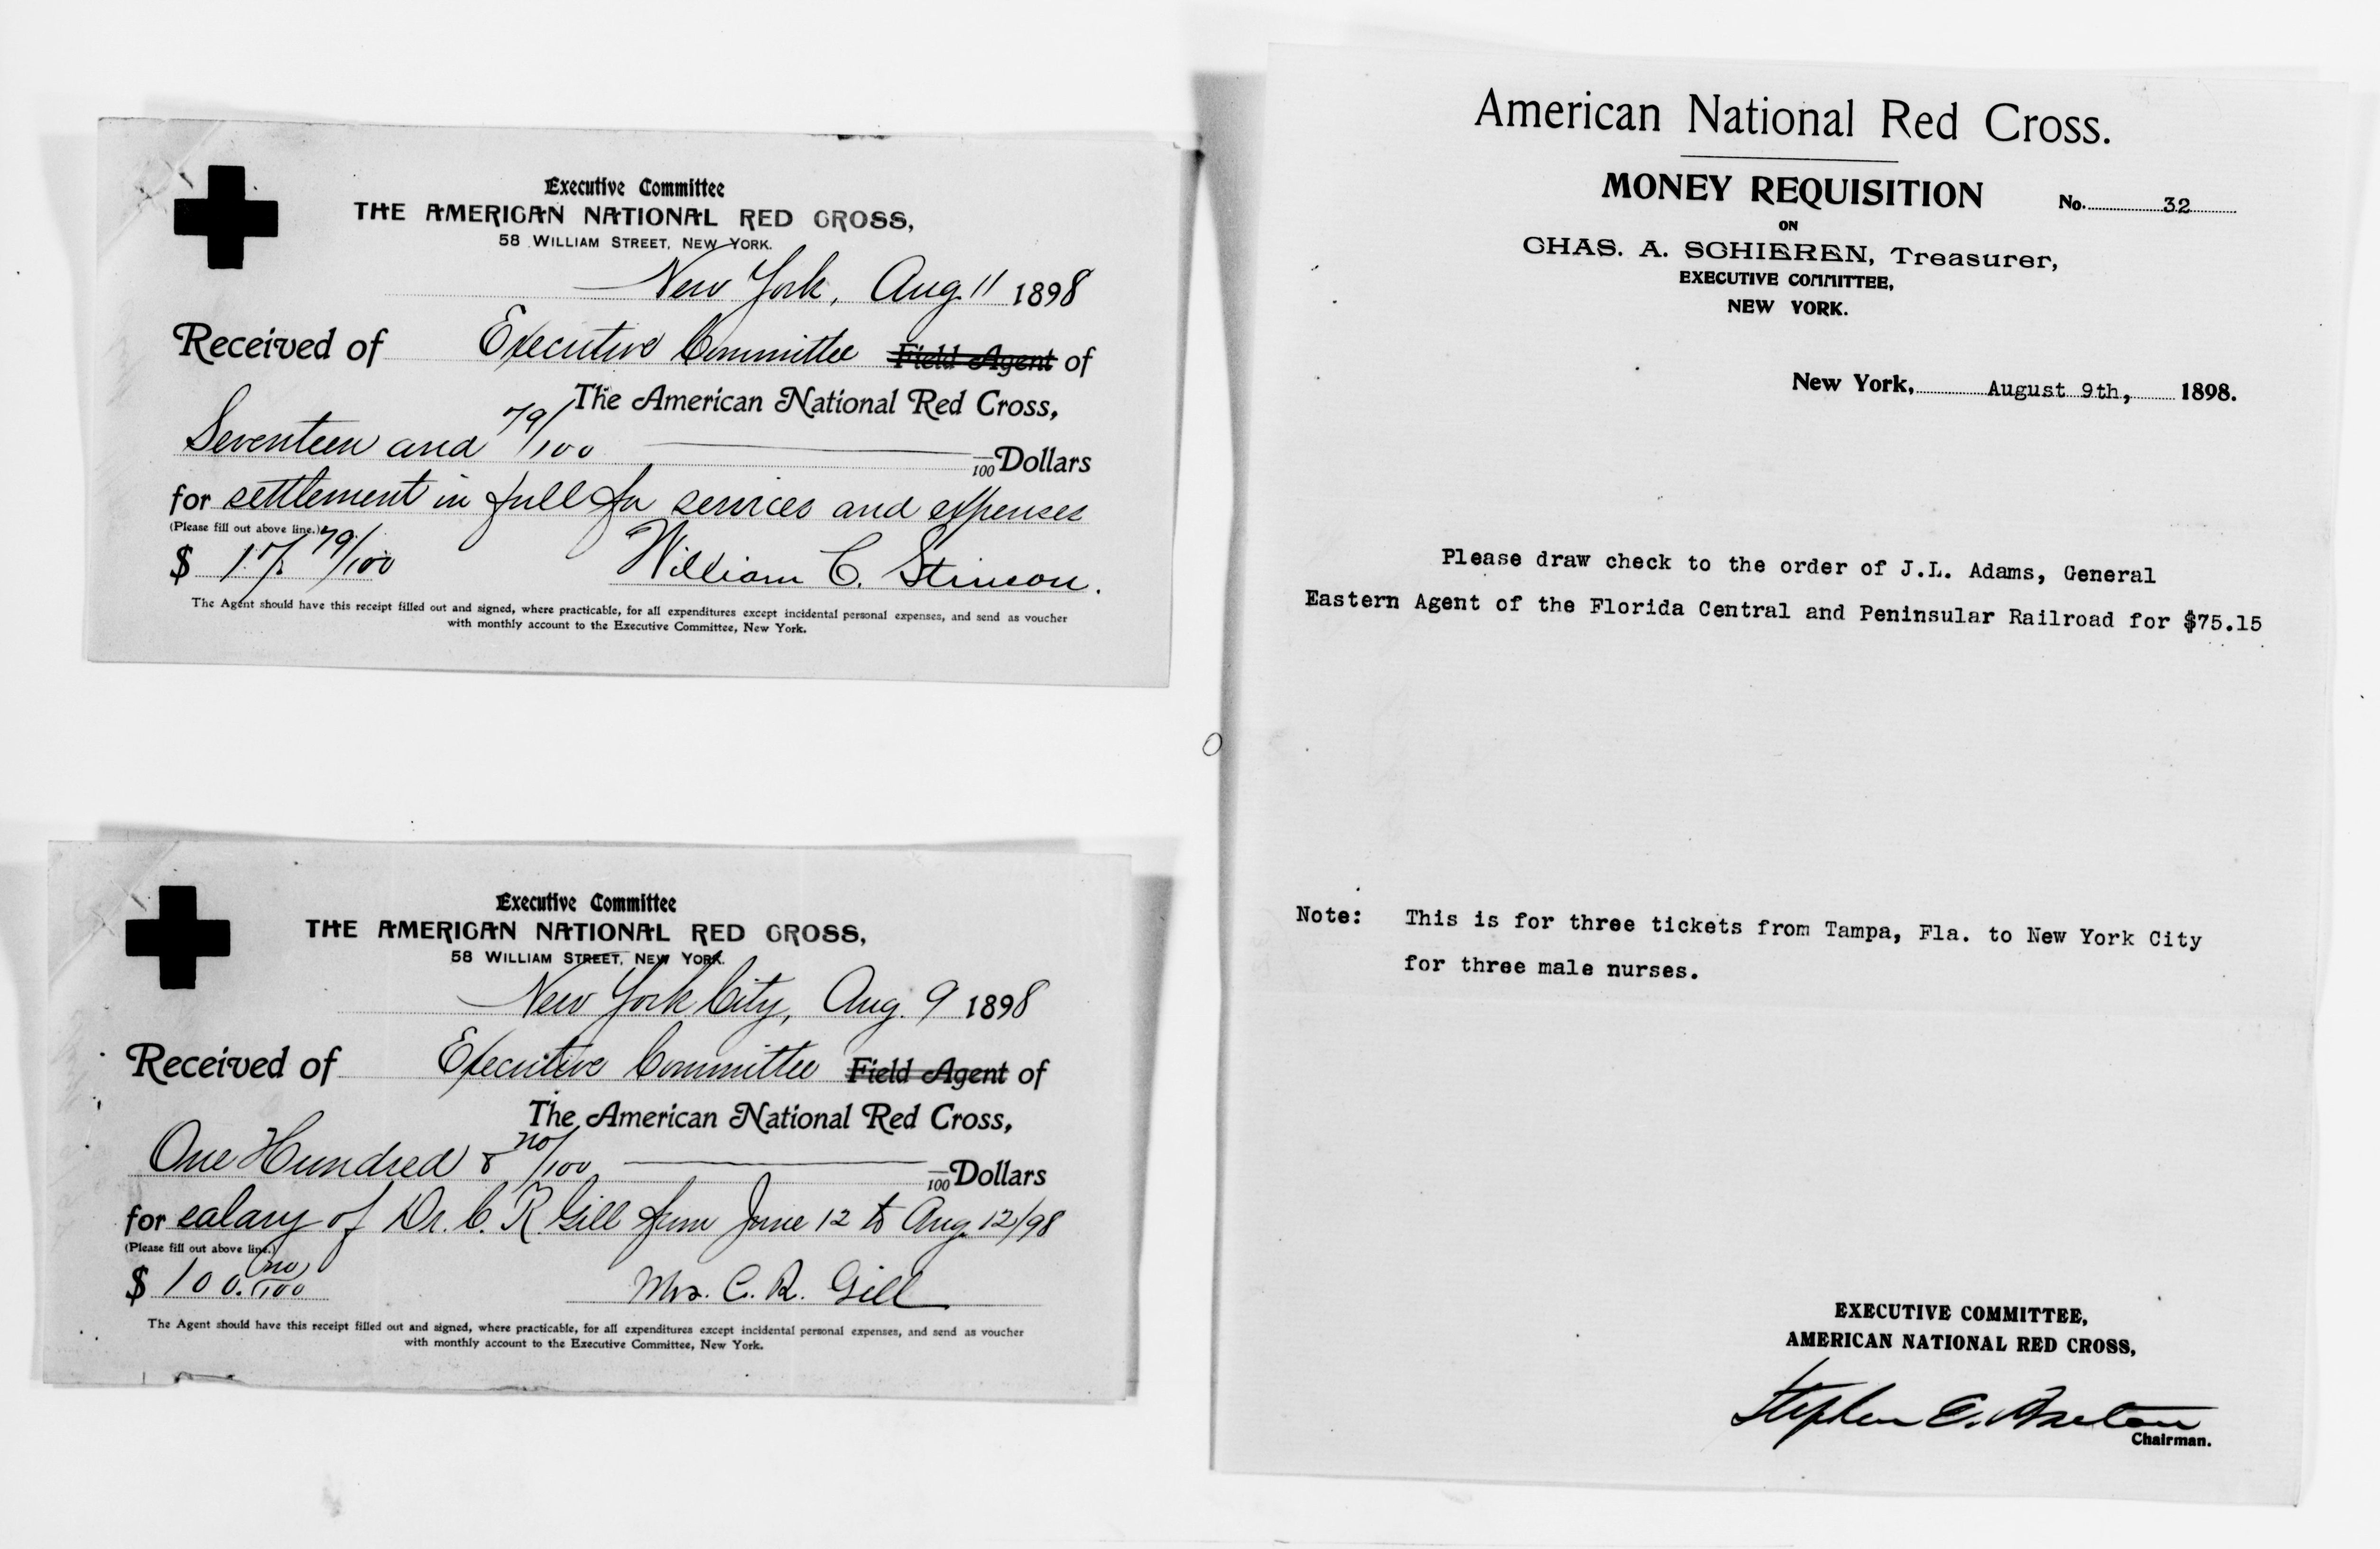 Executive Committee
THE AMERICAN NATIONAL RED CROSS,
58 WILLIAM STREET, NEW YORK.
New York, Aug. 11 1898
Received of Executive Committee Field Agent of
The American National Red Cross,
Seventeen and 79/100 /100 Dollars
for settlement in full for services and expenses
(Please fill out above line.)
$ 17. 79/100 William C. Stinson.
The Agent should have this receipt filled out and signed, where practicable, for all expenditures except incidental personal expenses, and send as voucher
with monthly account to the Executive Committee, New York.
Executive Committee
THE AMERICAN NATIONAL RED CROSS,
58 WILLIAM STREET, NEW YORK.
New York City, Aug. 9 1898
Received of Executive Committee Field Agent of
The American National Red Cross,
One Hundred & no/100 /100 Dollars
for salary of Dr. C. R. Gill from June 12 to Aug. 12/98
(Please fill out above line.)
$ 100. no/100 Mrs. C. R. Gill
The Agent should have this receipt filled out and signed, where practicable, for all expenditures except incidental personal expenses, and send as voucher
with monthly account to the Executive Committee, New York.
American National Red Cross.
MONEY REQUISITION No. 32
ON
CHAS. A. SCHIEREN, Treasurer,
EXECUTIVE COMMITTEE,
NEW YORK.
New York, August 9th, 1898.
Please draw check to the order of J.L. Adams, General
Eastern Agent of the Florida Central and Peninsular Railroad for $75.15
Note: This is for three tickets from Tampa, Fla. to New York City
for three male nurses.
EXECUTIVE COMMITTEE,
AMERICAN NATIONAL RED CROSS,
Stephen E. Barton
Chairman.